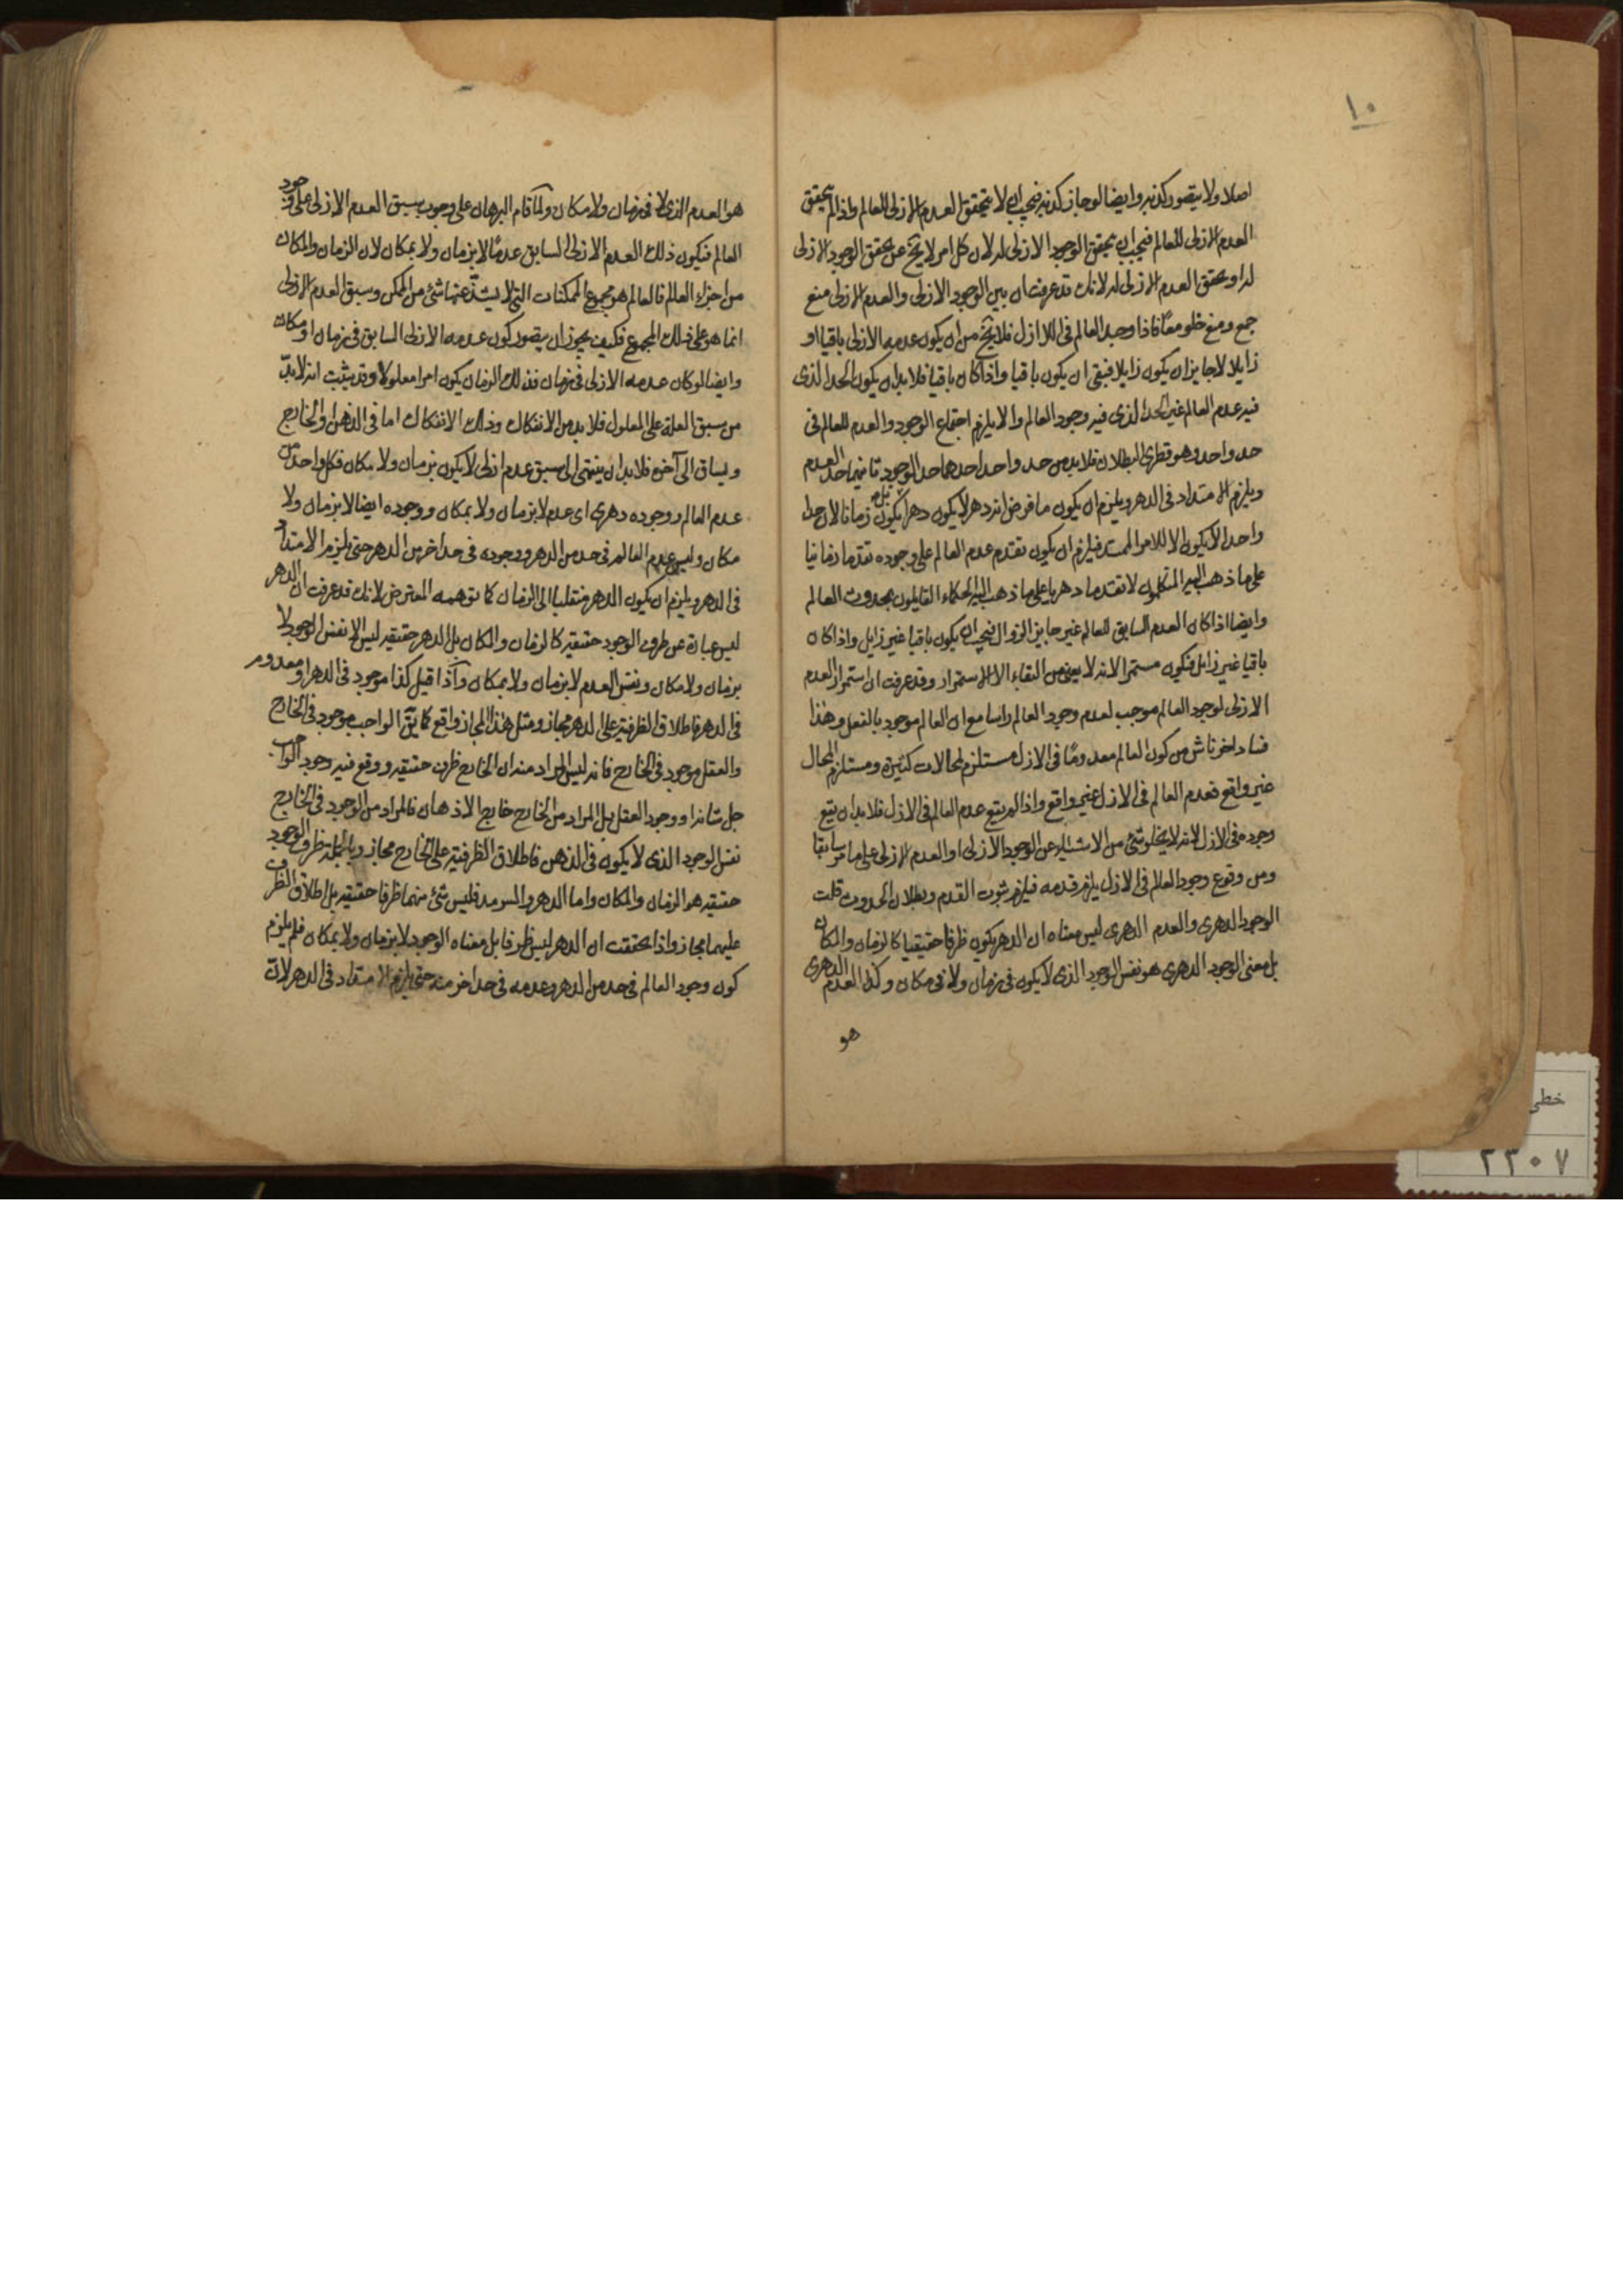 ١٠
اصلا ولا يتصور كذبه وايضا لو جاز كذبه فيجب ان لا يتحقق العدم الازلى للعالم واذا لم يتحقق
العدم الازلى للعالم فيجب ان يتحقق الوجود الازلى له لان كل امر لا يخ عن تحقق الوجود الازلى
له او تحقق العدم الازلى له لانك قد عرفت ان بين الوجود الازلى والعدم الازلى منع
جمع ومنع خلو معًا فاذا وجد العالم فى اللاازل فلا يخ من ان يكون عدمه الازلى باقيا او
زايلا لا جايز ان يكون زايلا فبقى ان يكون باقيا واذا كان باقيا فلا بد ان يكون الحد الذى
فيه عدم العالم غير الحد الذى فيه وجود العالم والا يلزم اجتماع الوجود والعدم للعالم فى
حد واحد وهو فطرى البطلان فلا بد من حد واحد احدهما حد الوجود ثانيهما حد العدم
ويلزم الامتداد فى الدهر ويلزم ان يكون ما فرض انه دهر لا يكون دهرا بل يكون زمانا لان حدا
واحدا لا يكون الا للامر الممتد فيلزم ان يكون تقدم عدم العالم على وجوده تقدما زمانيا
على ما ذهب اليه المتكلمون لا تقدما دهريا على ما ذهب اليه الحكماء القايلون بحدوث العالم
وايضا اذا كان العدم السابق للعالم غير جايز الزوال فيجب ان يكون باقيا غير زايل واذا كان
باقيا غير زايل فيكون مستمرا لانه لا يعنى من البقاء الا الاستمرار وقد عرفت ان استمرار العدم
الازلى لوجود العالم موجب لعدم وجود العالم راسا مع ان العالم موجود بالفعل وهذا
فساد اخر ناش من كون العالم معدومًا فى الازل مستلزم لمحالات كثيرة ومستلزم المحال
غير واقع فعدم العالم فى الازل غير واقع واذا لم يقع عدم العالم فى الازل فلا بد ان يقع
وجوده فى الازل لانه لا يخلو شئ من الاشياء عن الوجود الازلى او العدم الازلى على ما مر سابقا
ومن وقوع وجود العالم فى الازل يلزم قدمه فيلزم ثبوت القدم وبطلان الحدوث قلت
الوجود الدهرى والعدم الدهرى ليس معناه ان الدهر يكون ظرفا حقيقيا كالزمان والمكان
بل معنى الوجود الدهرى هو نفس الوجود الذى لا يكون فى زمان ولا فى مكان وكذا العدم الدهرى
هو
هو العدم الذى لا فى زمان ولا مكان ولما قام البرهان على وجوب سبق العدم الازلى على وجود
العالم فيكون ذلك العدم الازلى السابق عدمًا لا بزمان ولا بمكان لان الزمان والمكان
من اجزاء العالم فالعالم هو مجموع الممكنات التى لا يشذ عنها شئ من الممكن وسبق العدم الازلى
انما هو على ذلك المجموع فكيف يجوز ان يتصور كون عدمه الازلى السابق فى زمان او مكان
وايضا لو كان عدمه الازلى فى زمان فذلك الزمان يكون امرا معلولا وقد يثبت انه لا بدّ
من سبق العلة على المعلول فلا بد من الانفكاك وذلك الانفكاك اما فى الذهن او الخارج
ويساق الى آخره فلا بد ان ينتهى الى سبق عدم ازلى لا يكون بزمان ولا مكان فكل واحد من
عدم العالم ووجوده دهرى اى عدم لا بزمان ولا بمكان ووجوده ايضا لا بزمان ولا
مكان وليس عدم العالم فى حد من الدهر ووجوده فى حد اخر من الدهر حتى يلزم الامتداد
فى الدهر ويلزم ان يكون الدهر منقلبا الى الزمان كما توهمه المعترض لانك قد عرفت ان الدهر
ليس عبارة عن ظرف الوجود حقيقة كالزمان والمكان بل الدهر حقيقة ليس الا نفس الوجود لا
بزمان ولا مكان ونفس العدم لا بزمان ولا بمكان واذا قيل كذا موجود فى الدهر او معدوم
فى الدهر فاطلاق الظرفية على الدهر مجاز ومثل هذا المجاز واقع كما يقال الواجب موجود فى الخارج
والعقل موجود فى الخارج فانه ليس المراد منه ان الخارج ظرف حقيقة ووقع فيه وجود الواجب
جل شانه او وجود العقل بل المراد من الخارج خارج الاذهان فالمراد من الوجود فى الخارج
نفس الوجود الذى لا يكون فى الذهن فاطلاق الظرفية على الخارج مجاز وبالجملة ظرف الوجود
حقيقة هو الزمان والمكان واما الدهر والسرمد فليس شئ منهما ظرفا حقيقة بل اطلاق الظرف
عليهما مجاز واذا تحققت ان الدهر ليس ظرفا بل معناه الوجود لا بزمان ولا بمكان فلم يلزم
كون وجود العالم فى حد من الدهر وعدمه فى حد اخر منه حتى يلزم الامتداد فى الدهر لان
خطى
٢٣٠٧